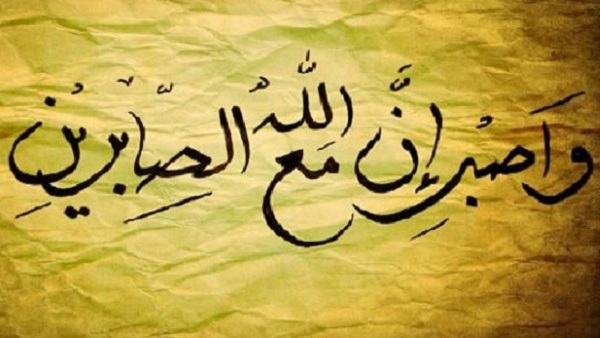 وَاصْبِر إِنَّ اللَّهُ مَعَ الصَّابِرِيْنِ